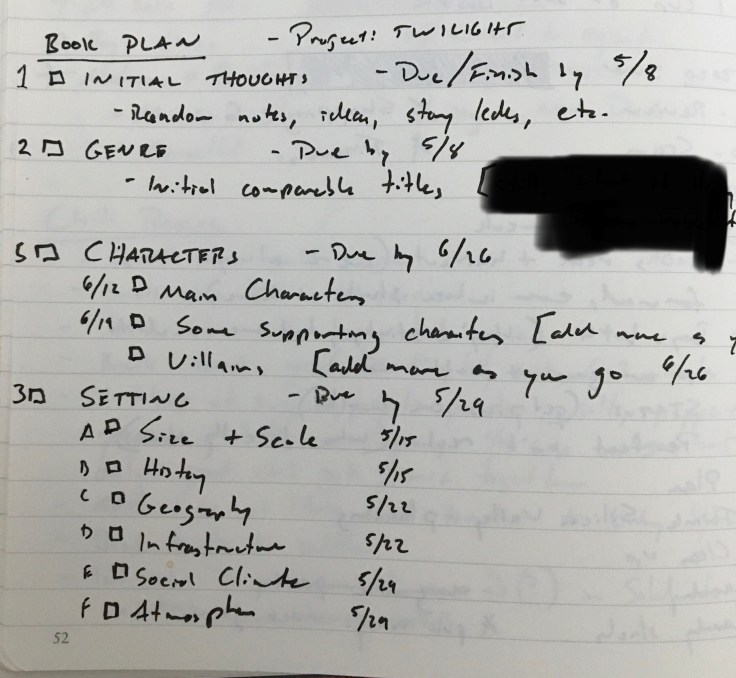 BOOK PLAN - Project: TWILIGHT
1 □ INITIAL THOUGHTS - Due/Finish by 5/8
- Random notes, ideas, story ledes, etc.
2 □ GENRE - Due by 5/8
- Initial comparable titles, [
5 □ CHARACTERS - Due by 6/26
6/12 □ Main Characters
6/19 □ Some supporting characters [add more as y
□ Villains, [add more as you go 6/26
3 □ SETTING - Due by 5/29
A □ Size + Scale 5/15
B □ History 5/15
C □ Geography 5/22
D □ Infrastructure 5/22
E □ Social Climate 5/29
F □ Atmosphere 5/29
52